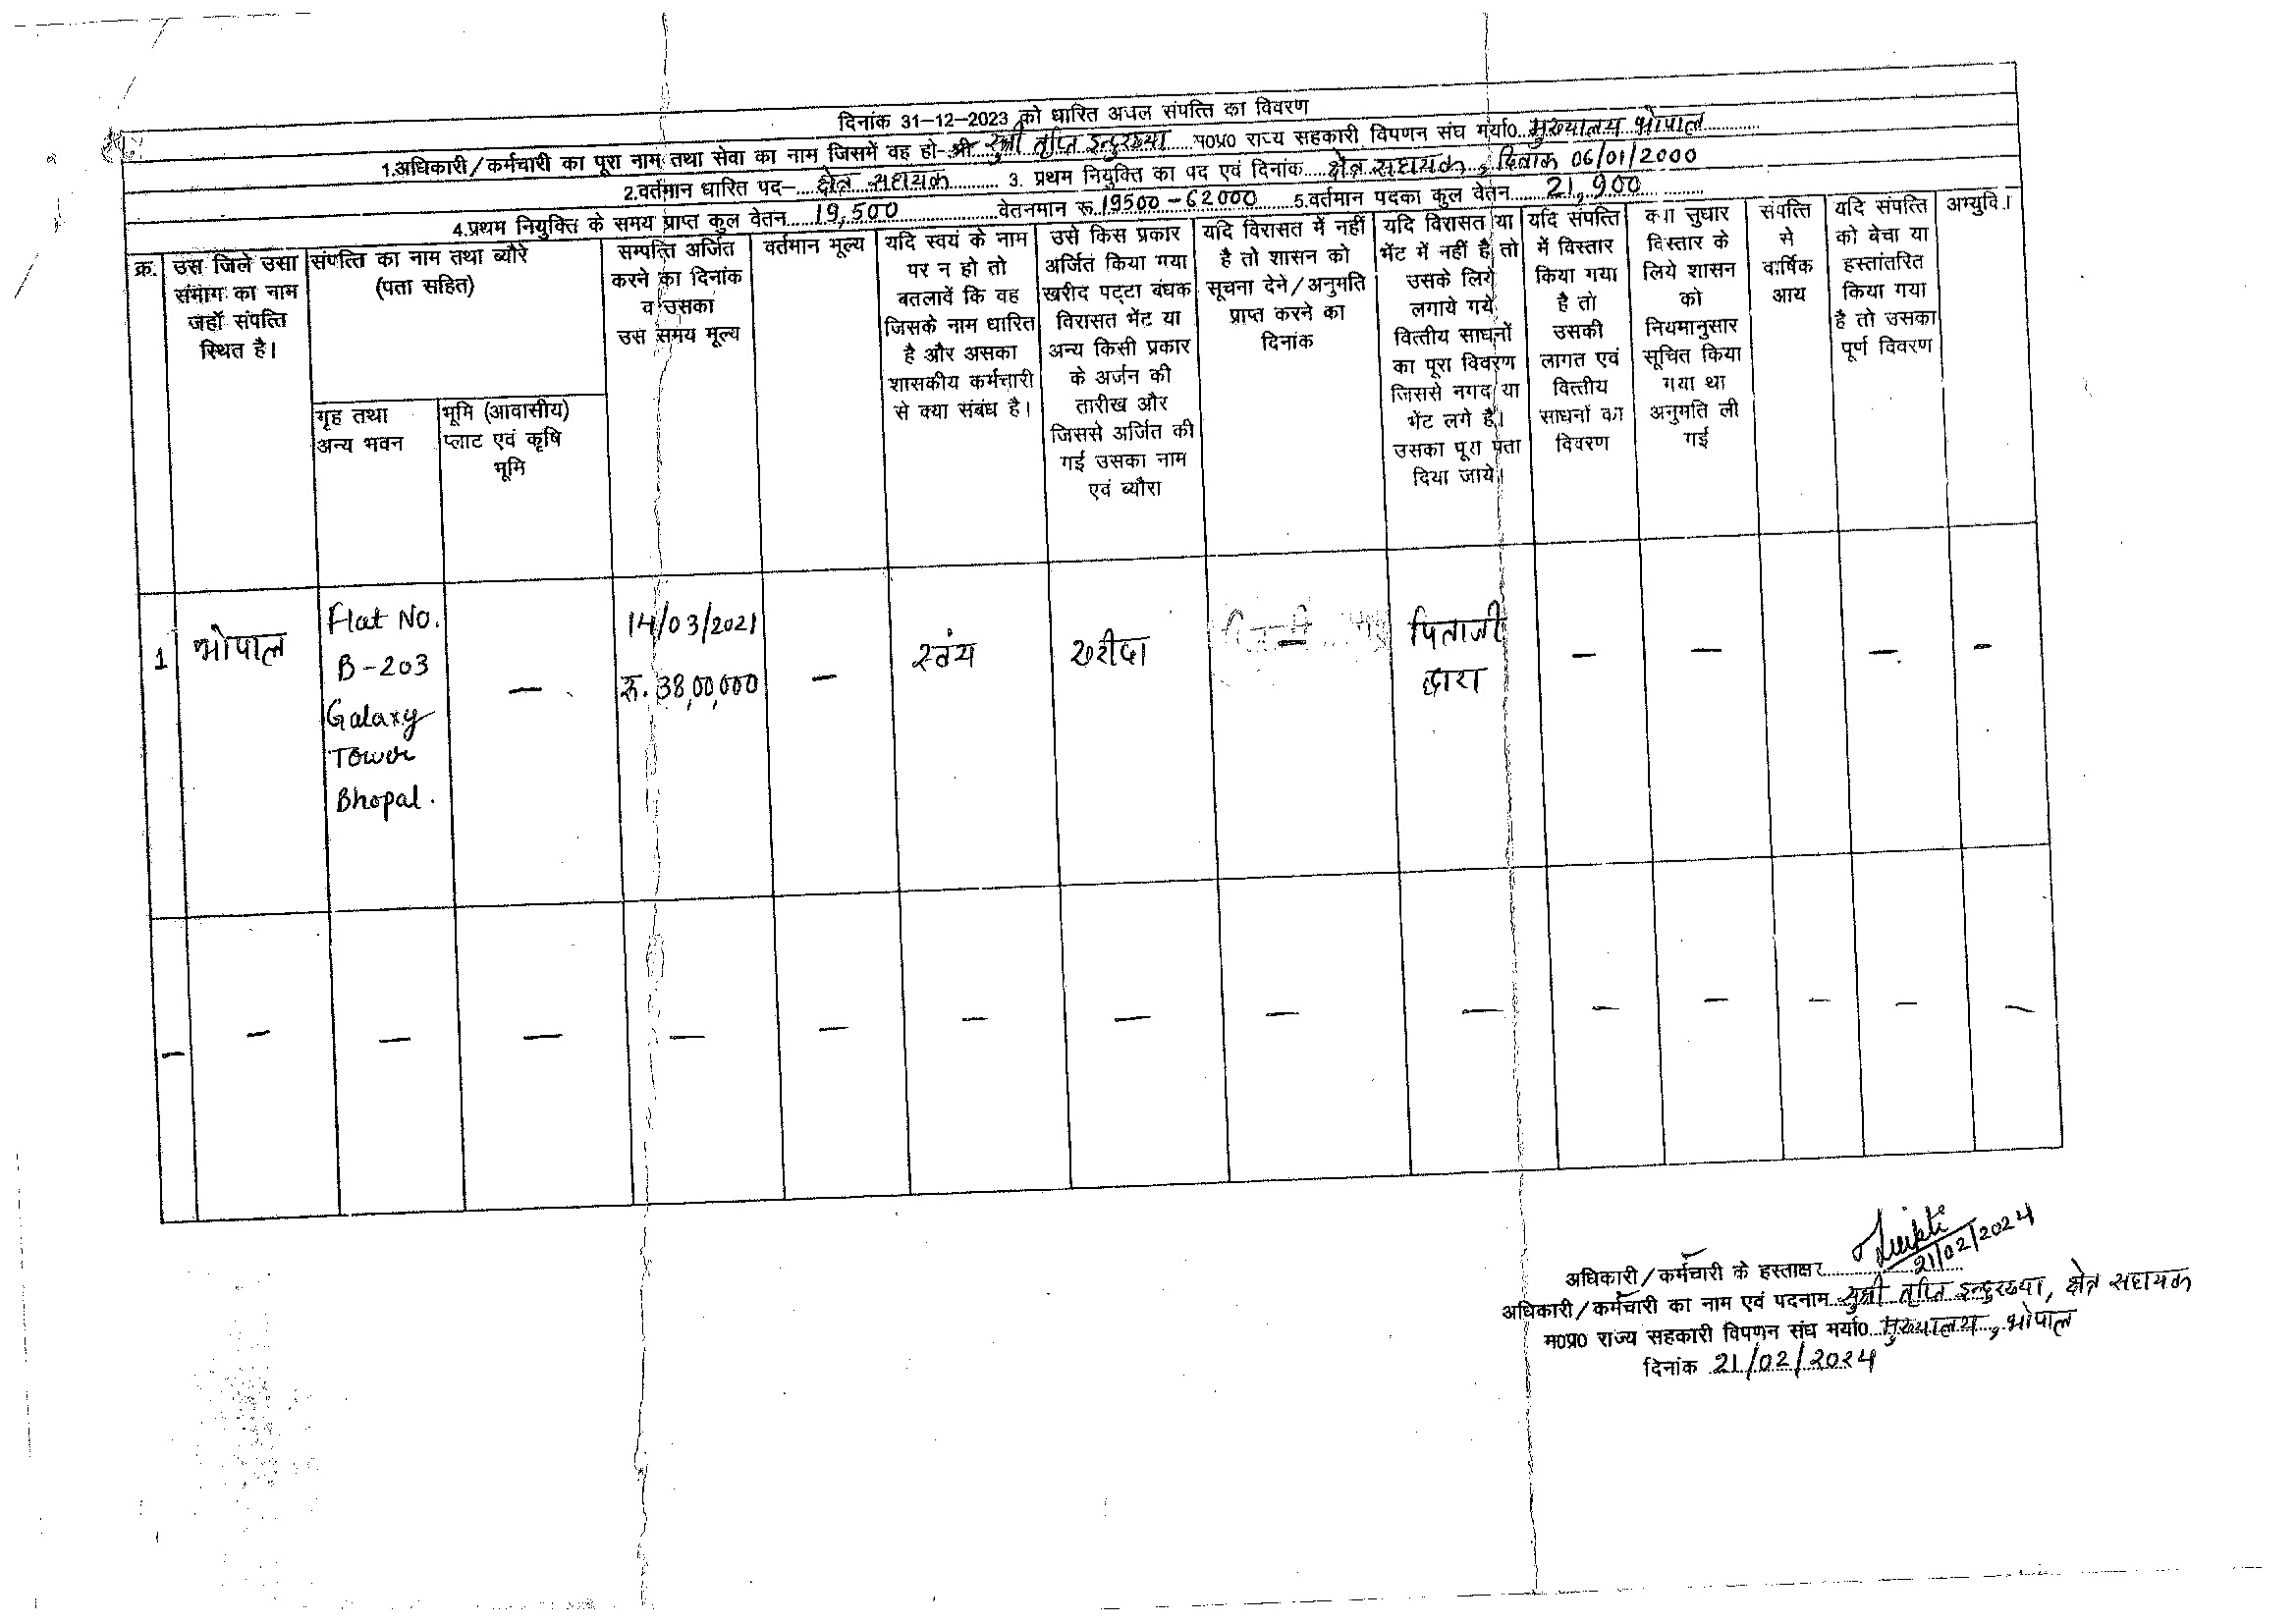 दिनांक 31-12-2023 को धारित अचल संपत्ति का विवरण
1.अधिकारी/कर्मचारी का पूरा नाम तथा सेवा का नाम जिसमें वह हो-श्री सुश्री तृप्ति इन्दुरख्या म0प्र0 राज्य सहकारी विपणन संघ मर्या0 मुख्यालय भोपाल
2.वर्तमान धारित पद- क्षेत्र सहायक 3. प्रथम नियुक्ति का पद एवं दिनांक क्षेत्र सहायक, दिनांक 06/01/2000
4.प्रथम नियुक्ति के समय प्राप्त कुल वेतन 19,500 वेतनमान रू. 19500-62000 5.वर्तमान पदका कुल वेतन 21,900
क्र.
उस जिले उसा
संभाग का नाम
जहाँ संपत्ति
स्थित है।
संपत्ति का नाम तथा ब्यौरे
(पता सहित)
गृह तथा
अन्य भवन
भूमि (आवासीय)
प्लाट एवं कृषि
भूमि
सम्पत्ति अर्जित
करने का दिनांक
व उसका
उस समय मूल्य
वर्तमान मूल्य
यदि स्वयं के नाम
पर न हो तो
बतलावें कि वह
जिसके नाम धारित
है और असका
शासकीय कर्मचारी
से क्या संबंध है।
उसे किस प्रकार
अर्जित किया गया
खरीद पट्टा बंधक
विरासत भेंट या
अन्य किसी प्रकार
के अर्जन की
तारीख और
जिससे अर्जित की
गई उसका नाम
एवं ब्यौरा
यदि विरासत में नहीं
है तो शासन को
सूचना देने/अनुमति
प्राप्त करने का
दिनांक
यदि विरासत या
भेंट में नहीं है तो
उसके लिये
लगाये गये
वित्तीय साधनों
का पूरा विवरण
जिससे नगद या
भेंट लगे है।
उसका पूरा पता
दिया जाये।
यदि संपत्ति
में विस्तार
किया गया
है तो
उसकी
लागत एवं
वित्तीय
साधनों का
विवरण
क्या सुधार
विस्तार के
लिये शासन
को
नियमानुसार
सूचित किया
गया था
अनुमति ली
गई
संपत्ति
से
वार्षिक
आय
यदि संपत्ति
को बेचा या
हस्तांतरित
किया गया
है तो उसका
पूर्ण विवरण
1
भोपाल
Flat No.
B-203
Galaxy
Tower
Bhopal.
—
14/03/2021
रु. 38,00,000
—
स्वंय
खरीदा
—
पिताजी
द्वारा
— — — -
— — — — — — — — — — — — — — —
21/02/2024
अधिकारी/कर्मचारी के हस्ताक्षर
अधिकारी/कर्मचारी का नाम एवं पदनाम सुश्री तृप्ति इन्दुरख्या, क्षेत्र सहायक
म0प्र0 राज्य सहकारी विपणन संघ मर्या0 मुख्यालय, भोपाल
दिनांक 21/02/2024